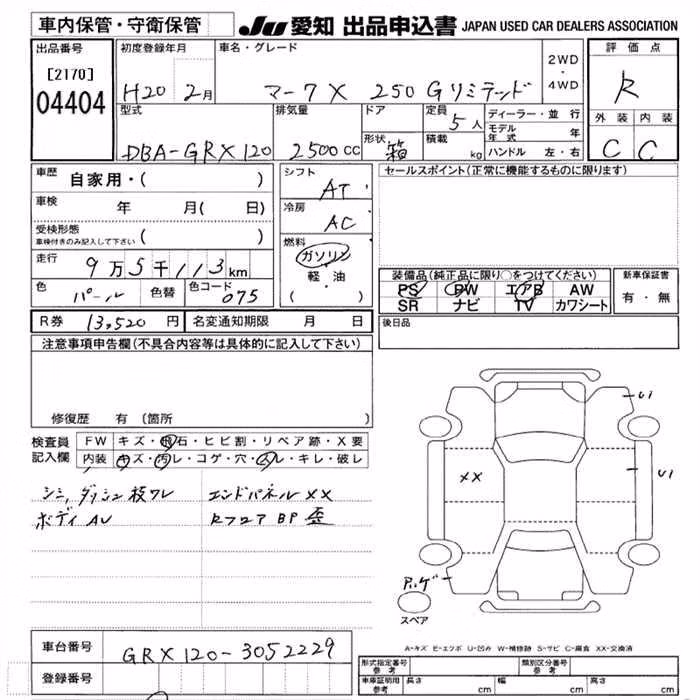 車内保管・守衛保管 JU 愛知 出品申込書 JAPAN USED CAR DEALERS ASSOCIATION
出品番号 初度登録年月 車名・グレード 2WD・4WD 評価点
[2170] 04404 H20 2月 マークX 250 Gリミテッド R
型式 排気量 ドア 定員 5人 ディーラー・並行
モデル年式 年 外装 内装
DBA-GRX120 2500cc 形状 箱 積載 kg ハンドル 左・右 C C
車歴 自家用・( ) シフト AT セールスポイント(正常に機能するものに限ります)
車検 年 月( 日) 冷房 AC
受検形態 車検付きのみ記入して下さい ( ) 燃料 ガソリン 軽・油 ( ・ )
走行 9万5千113km
装備品(純正品に限り○をつけてください) 新車保証書
PS PW エアB AW 有・無
SR ナビ TV カワシート
色 パール 色替 色コード 075
R券 13,520円 名変通知期限 月 日 後日品
注意事項申告欄(不具合内容等は具体的に記入して下さい)
修復歴 有 (箇所 )
検査員記入欄 FW キズ・飛石・ヒビ割・リペア跡・X要
内装 キズ・汚レ・コゲ・穴・スレ・キレ・破レ
シミ, ダッシュ枝ワレ エンドパネルXX
ボディAU RフロアBP歪
U1
U1
XX
スペア
A-キズ E-エクボ U-凹み W-補修跡 S-サビ C-腐食 XX-交換済
車台番号 GRX120-3052229
登録番号
形式指定番号 参考 類別区分番号 参考
車庫証明用 参考 長さ cm 幅 cm 高さ cm